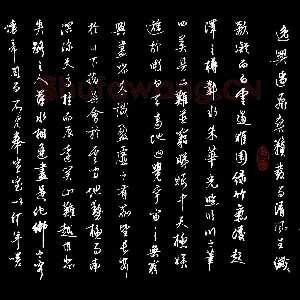 逸興遄飛爽籟發而清風生纖
歌凝而白雲遏睢園綠竹氣凌彭
澤之樽鄴水朱華光照臨川之筆
四美具二難并窮睇眄於中天極娛
遊於暇日天高地迥覺宇宙之無窮
興盡悲來識盈虛之有數望長安
於日下指吳會於雲間地勢極而南
溟深天柱高而北辰遠關山難越誰悲
失路之人萍水相逢盡是他鄉之客
懷帝閽而不見奉宣室以何年嗟
Shufawang.CN